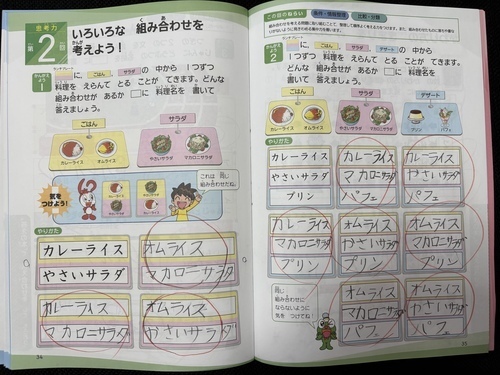 思考力
第2回
いろいろな 組み合わせを
考えよう!
かんがえよう
1
ランチプレート
に、 ごはん 、 サラダ の 中から 1つずつ
料理を えらんで とる ことが できます。どんな
組み合わせが あるか □に 料理名を 書いて
答えましょう。
ごはん
サラダ
カレーライス
オムライス
やさいサラダ
マカロニサラダ
気を
つけよう!
これは 同じ
組み合わせだね。
やりかた
カレーライス
やさいサラダ
オムライス
マカロニサラダ
カレーライス
マカロニサラダ
オムライス
やさいサラダ
34
この回のねらい
条件・情報整理
比較・分類
かんがえよう
2
ランチプレート
に、 ごはん 、 サラダ 、 デザート の 中から 1つずつ
料理を えらんで とる ことが できます。どんな
組み合わせが あるか □に 料理名を 書いて
答えましょう。
ごはん
サラダ
デザート
カレーライス
オムライス
やさいサラダ
マカロニサラダ
プリン
パフェ
やりかた
カレーライス
やさいサラダ
プリン
カレーライス
マカロニサラダ
パフェ
カレーライス
やさいサラダ
パフェ
カレーライス
マカロニサラダ
プリン
オムライス
やさいサラダ
プリン
オムライス
マカロニサラダ
プリン
同じ
組み合わせに
ならないように
気を つけてね!
オムライス
マカロニサラダ
パフェ
オムライス
やさいサラダ
パフェ
35